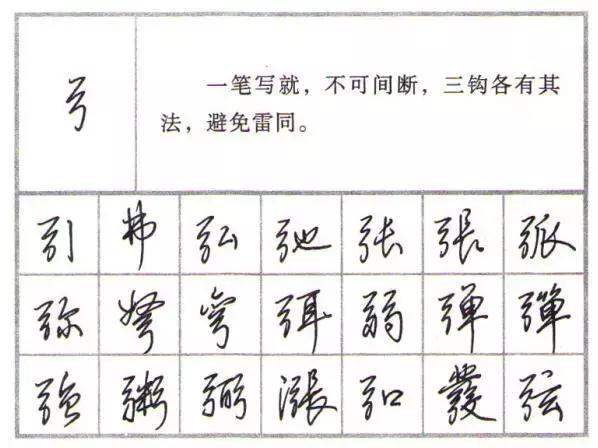 弓
一笔写就，不可间断，三钩各有其
法，避免雷同。
引 弗 弘 弛 张 張 弧
弥 弩 弯 弭 弱 弹 彈
强 粥 弼 漲 發 弦